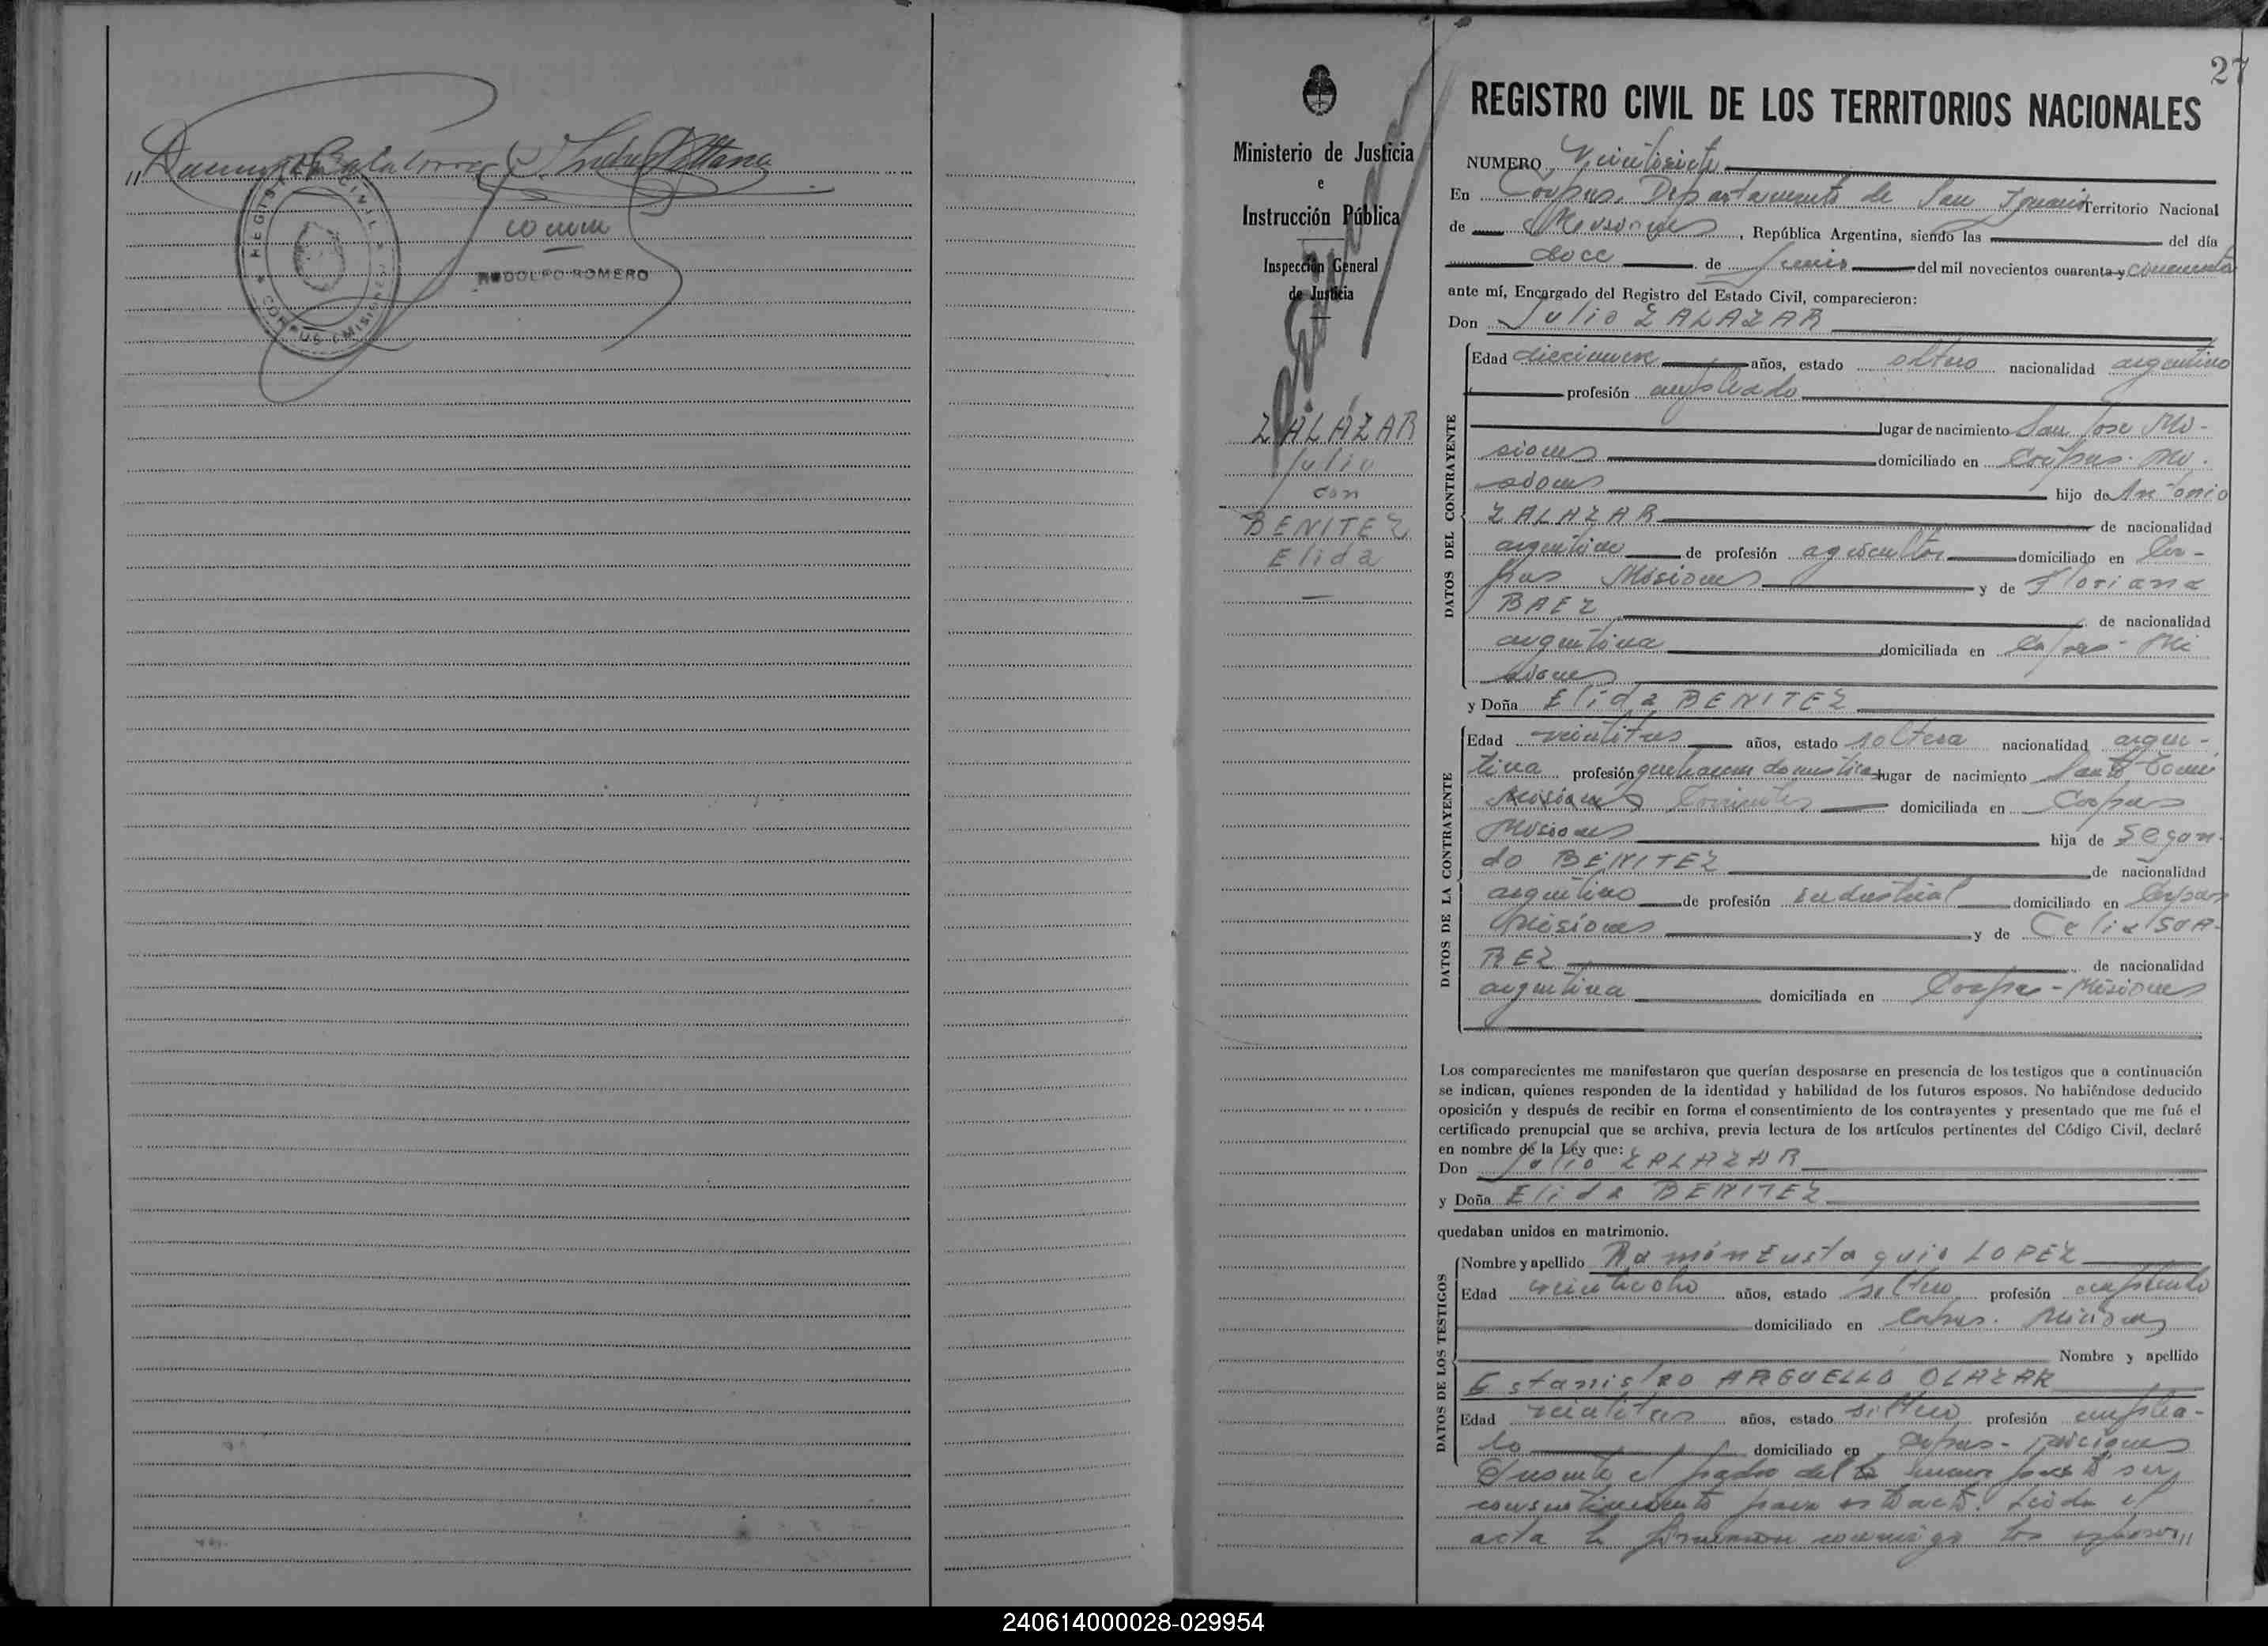 27
Ministerio de Justicia
e
Instrucción Pública
Inspección General
de Justicia
ZALAZAR
Julio
con
BENITEZ
Elida
RODOLFO ROMERO
REGISTRO CIVIL
CORPUS (MISIONES)
REGISTRO CIVIL DE LOS TERRITORIOS NACIONALES
NUMERO Veintisiete
En Corpus, Departamento de San Ignacio Territorio Nacional
de Misiones, República Argentina, siendo las del día
doce de Junio del mil novecientos cuarenta y cincuenta
ante mí, Encargado del Registro del Estado Civil, comparecieron:
Don Julio ZALAZAR
DATOS DEL CONTRAYENTE
Edad diecinueve años, estado soltero nacionalidad argentino
profesión empleado
lugar de nacimiento San Jose Mi-
siones domiciliado en Corpus. Mi-
siones hijo de Antonio
ZALAZAR de nacionalidad
argentino de profesión agricultor domiciliado en Cor-
pus Misiones y de Floriana
BAEZ de nacionalidad
argentina domiciliada en Corpus - Mi
siones
y Doña Elida BENITEZ
DATOS DE LA CONTRAYENTE
Edad veintitres años, estado soltera nacionalidad argen-
tina profesión quehaceres domesticos lugar de nacimiento Santo Tomé
Misiones Corrientes domiciliada en Corpus
Misiones hija de Segun-
do BENITEZ de nacionalidad
argentino de profesión industrial domiciliado en Corpus
Misiones y de Celia SUA-
REZ de nacionalidad
argentina domiciliada en Corpus - Misiones
Los comparecientes me manifestaron que querían desposarse en presencia de los testigos que a continuación
se indican, quienes responden de la identidad y habilidad de los futuros esposos. No habiéndose deducido
oposición y después de recibir en forma el consentimiento de los contrayentes y presentado que me fué el
certificado prenupcial que se archiva, previa lectura de los artículos pertinentes del Código Civil, declaré
en nombre de la Ley que:
Don Julio ZALAZAR
y Doña Elida BENITEZ
quedaban unidos en matrimonio.
DATOS DE LOS TESTIGOS
Nombre y apellido Ramón Eustaquio LOPEZ
Edad veintiocho años, estado soltero profesión empleado
domiciliado en Corpus. Misiones
Nombre y apellido
Estanislao ARGUELLO OLAZAR
Edad veintitres años, estado soltero profesión emplea-
do domiciliado en Corpus - Misiones
Presente el padre del menor presto ser
consentimiento para este acto. Leida el
acta la firmaron conmigo los esposos,,
240614000028-029954